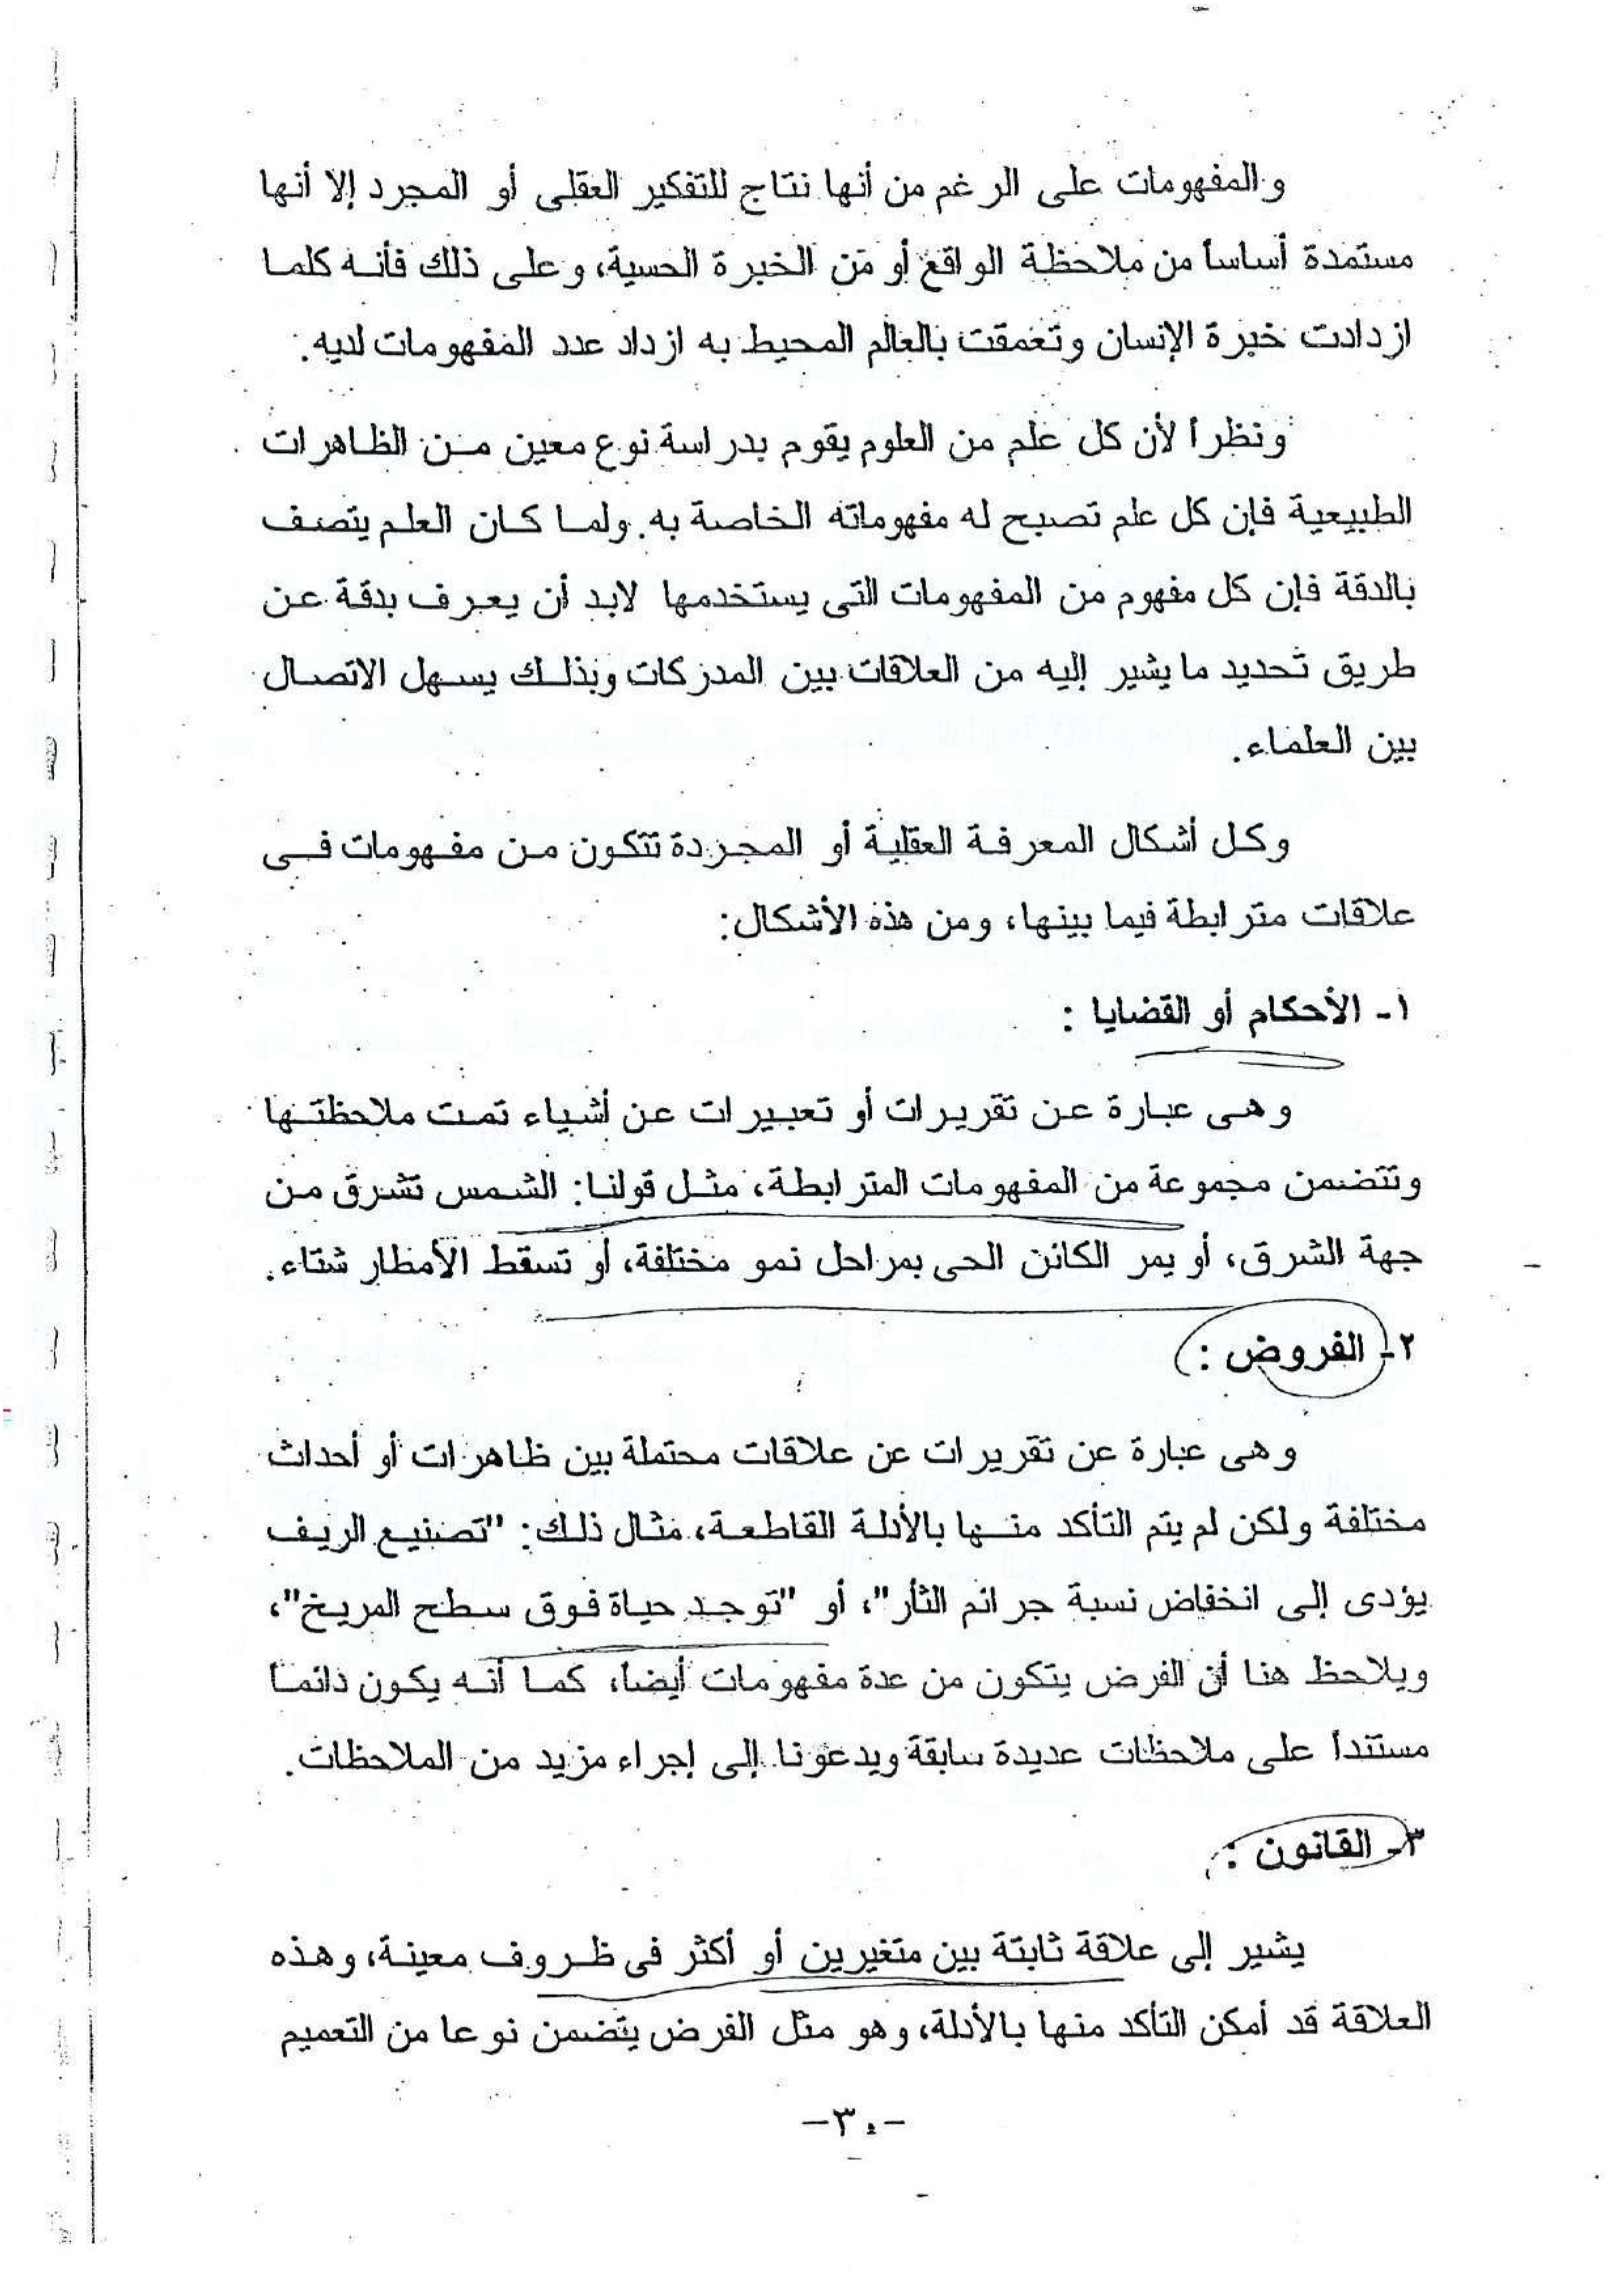 والمفهومات على الرغم من أنها نتاج للتفكير العقلى أو المجرد إلا أنها
مستمدة أساساً من ملاحظة الواقع أو من الخبرة الحسية، وعلى ذلك فأنه كلما
ازدادت خبرة الإنسان وتعمقت بالعالم المحيط به ازداد عدد المفهومات لديه.
ونظراً لأن كل علم من العلوم يقوم بدراسة نوع معين من الظاهرات
الطبيعية فإن كل علم تصبح له مفهوماته الخاصة به. ولما كان العلم يتصف
بالدقة فإن كل مفهوم من المفهومات التى يستخدمها لابد أن يعرف بدقة عن
طريق تحديد ما يشير إليه من العلاقات بين المدركات وبذلك يسهل الاتصال
بين العلماء.
وكل أشكال المعرفة العقلية أو المجردة تتكون من مفهومات فى
علاقات مترابطة فيما بينها، ومن هذه الأشكال:
١- الأحكام أو القضايا :
وهى عبارة عن تقريرات أو تعبيرات عن أشياء تمت ملاحظتها
وتتضمن مجموعة من المفهومات المترابطة، مثل قولنا: الشمس تشرق من
جهة الشرق، أو يمر الكائن الحى بمراحل نمو مختلفة، أو تسقط الأمطار شتاء.
٢- الفروض :
وهى عبارة عن تقريرات عن علاقات محتملة بين ظاهرات أو أحداث
مختلفة ولكن لم يتم التأكد منها بالأدلة القاطعة، مثال ذلك: "تصنيع الريف
يؤدى إلى انخفاض نسبة جرائم الثأر"، أو "توجد حياة فوق سطح المريخ"،
ويلاحظ هنا أن الفرض يتكون من عدة مفهومات أيضاً، كما أنه يكون دائماً
مستنداً على ملاحظات عديدة سابقة ويدعونا إلى إجراء مزيد من الملاحظات.
٣- القانون :
يشير إلى علاقة ثابتة بين متغيرين أو أكثر فى ظروف معينة، وهذه
العلاقة قد أمكن التأكد منها بالأدلة، وهو مثل الفرض يتضمن نوعا من التعميم
-٣٠-